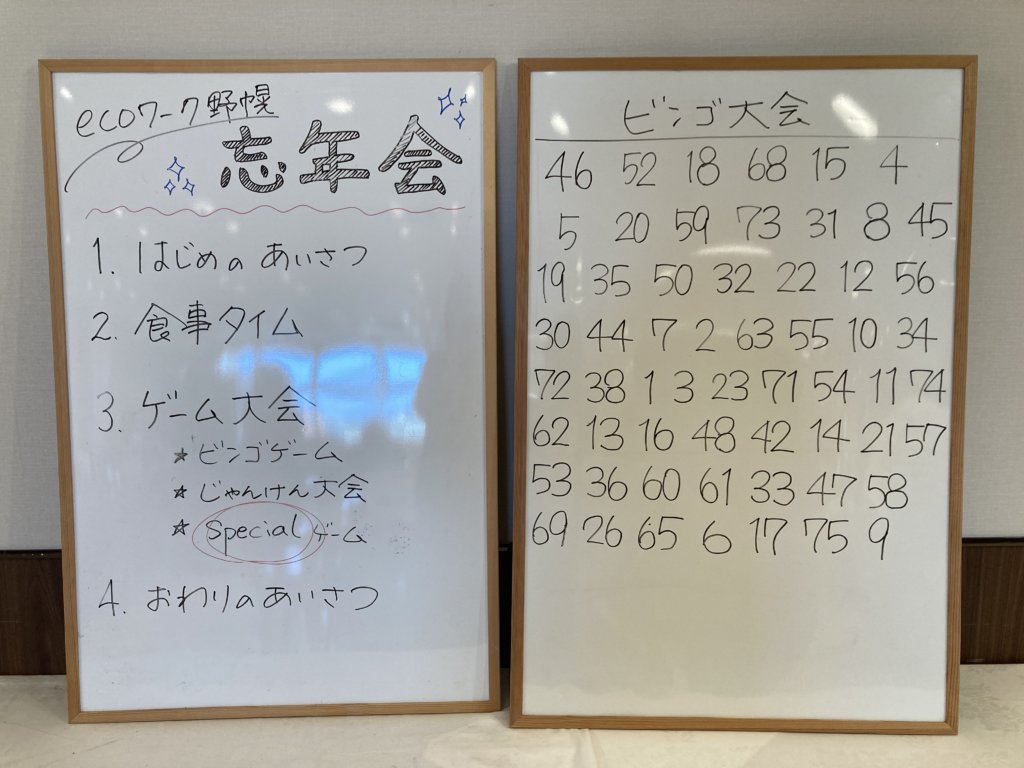 ecoワーク野幌
忘年会
1. はじめの あいさつ
2. 食事タイム
3. ゲーム大会
★ ビンゴゲーム
★ じゃんけん大会
★ Special ゲーム
4. おわりのあいさつ
ビンゴ大会
46 52 18 68 15 4
5 20 59 73 31 8 45
19 35 50 32 22 12 56
30 44 7 2 63 55 10 34
72 38 1 3 23 71 54 11 74
62 13 16 48 42 14 21 57
53 36 60 61 33 47 58
69 26 65 6 17 75 9